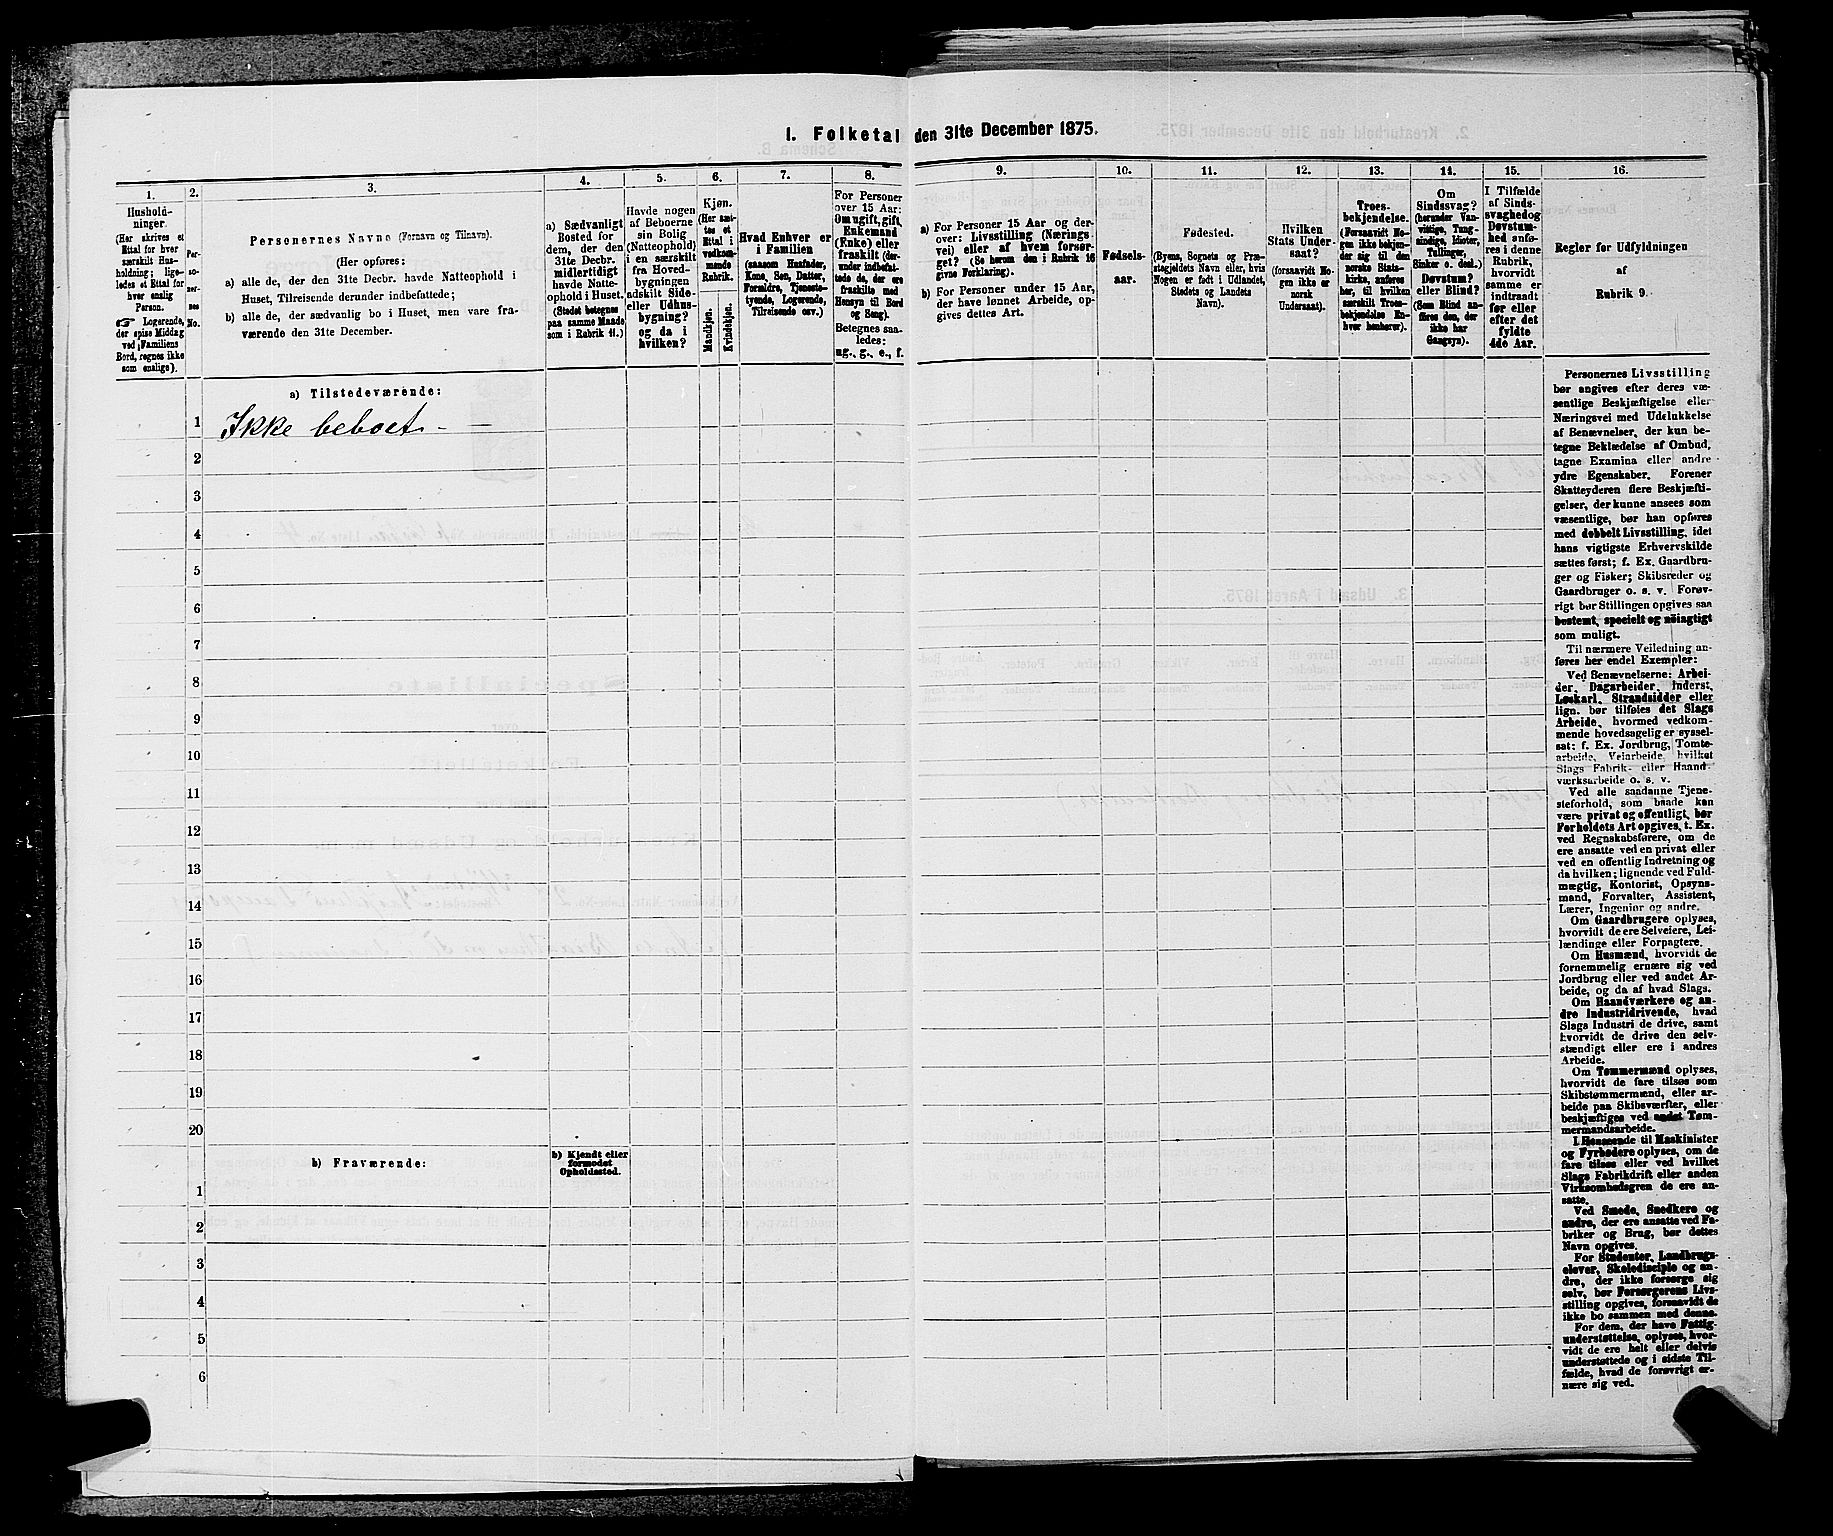 I. Folketal den 31te December 1875.
1.
Hushold-
ninger.
(Her skrives et
Ettal for hver
særskilt Hus-
holdning; lige-
ledes et Ettal for
hver enslig
Person.
☞ Logerende,
der spise Middag
ved Familiens
Bord, regnes ikke
som enslige).
2.
Per-
so-
ner-
nes
No.
3.
Personernes Navne (Fornavn og Tilnavn).
(Her opføres:
a) alle de, der den 31te Decbr. havde Natteophold i
Huset, Tilreisende derunder indbefattede;
b) alle de, der sædvanlig bo i Huset, men vare fra-
værende den 31te December.
4.
a) Sædvanligt
Bosted for
dem, der den
31te Decbr.
midlertidigt
havde Natte-
ophold i Huset.
(Stedet betegnes
paa samme Maade
som i Rubrik 11.)
5.
Havde nogen
af Beboerne
sin Bolig
(Natteophold)
i en særskilt
fra Hoved-
bygningen
adskilt Side-
eller Udhus-
bygning?
og da i
hvilken?
6.
Kjøn.
(Her sæt-
tes et
Ettal i
vedkom-
mende
Rubrik.
Mandkjøn.
Kvindekjøn.
7.
Hvad Enhver er
i Familien
(saasom Husfader,
Kone, Søn, Datter,
Forældre, Tjeneste-
tyende, Logerende,
Tilreisende osv.)
8.
For Personer
over 15 Aar:
Om ugift, gift,
Enkemand
(Enke) eller
fraskilt (der-
under indbefat-
tede de, der ere
fraskilte med
Hensyn til Bord
og Seng).
Betegnes saa-
ledes:
ug., g., e., f.
9.
a) For Personer 15 Aar og der-
over: Livsstilling (Nærings
vei) eller af hvem forsør-
get? (Se herom den i Rubrik 16
givne Forklaring).
b) For Personer under 15 Aar,
der have lønnet Arbeide, op-
gives dettes Art.
10.
Fødsels-
aar.
11.
Fødested.
(Byens, Sognets og Præ-
stegjeldets Navn eller, hvis
Nogen er født i Udlandet,
Stedets og Landets
Navn).
12.
Hvilken
Stats Under-
saat?
(forsaavidt No-
gen ikke er
norsk
Undersaat).
13.
Troes-
bekjendelse.
(Forsaavidt No-
gen ikke bekjen-
der sig til den
norske Stats-
kirke, anføres
her, til hvilken
særskilt Troes-
bekjendelse En-
hver henhører).
14.
Om
Sindssvag?
(herunder Van-
vittige, Tung-
sindige, Idioter,
Tullinger,
Sinker o. desl.)
Døvstum?
eller Blind?
(Som Blind an-
føres den, der
ikke har
Gangsyn).
15.
I Tilfælde
af Sinds-
svaghed og
Døvstum-
hed anfø-
res i denne
Rubrik,
hvorvidt
samme er
indtraadt
før eller
efter det
fyldte
4de Aar.
16.
Regler for Udfyldningen
af
Rubrik 9.
a) Tilstedeværende:
1 Ikke beboet - —
2
3
4
5
6
7
8
9
10
11
12
13
14
15
16
17
18
19
20
b) Fraværende:
b) Kjendt eller
formodet
Opholdssted.
1
2
3
4
5
6
Personernes Livsstilling
bør angives efter deres væ-
sentlige Beskjæftigelse eller
Næringsvei med Udelukkelse
af Benævnelser, der kun be-
tegne Beklædelse af Ombud,
tagne Examina eller andre
ydre Egenskaber. Forener
Skatteyderen flere Beskjæfti-
gelser, der kunne ansees som
væsentlige, bør han opføres
med dobbelt Livsstilling, idet
hans vigtigste Erhvervskilde
sættes først; f. Ex. Gaardbru-
ger og Fisker; Skibsreder og
Gaardbruger o. s. v. Forøv-
rigt bør Stillingen opgives saa
bestemt, specielt og nøiagtigt
som muligt.
Til nærmere Veiledning an-
føres her endel Exempler:
Ved Benævnelserne: Arbei-
der, Dagarbeider, Inderst,
Løskarl, Strandsidder eller
lign. bør tilføies det Slags
Arbeide, hvormed vedkom-
mende hovedsagelig er syssel-
sat: f. Ex. Jordbrug, Tomte-
arbeide, Veiarbeide, hvilket
Slags Fabrik- eller Haand-
værksarbeide o. s. v.
Ved alle saadanne Tjene-
steforhold, som baade kan
være privat og offentligt, bør
Forholdets Art opgives, t. Ex.
ved Regnskabsførere, om de
ere ansatte ved en privat eller
ved en offentlig Indretning og
da hvilken; lignende ved Fuld-
mægtig, Kontorist, Opsyns-
mand, Forvalter, Assistent,
Lærer, Ingeniør og andre.
Om Gaardbrugere oplyses,
hvorvidt de ere Selveiere, Lei-
lændinge eller Forpagtere.
Om Husmænd, hvorvidt de
fornemmelig ernære sig ved
Jordbrug eller ved andet Ar-
beide, og da af hvad Slags.
Om Haandværkere og an-
dre Industridrivende, hvad
Slags Industri de drive, samt
hvorvidt de drive den selv-
stændigt eller ere i andres
Arbeide.
Om Tømmermænd oplyses,
hvorvidt de fare tilsøs som
Skibstømmermænd, eller ar-
beide paa Skibsværfter, eller
beskjæftiges ved andet Tøm-
mermandsarbeide.
I Henseende til Maskinister
og Fyrbødere oplyses, om de
fare tilsøs eller ved hvilket
Slags Fabrikdrift eller anden
Virksomhedsgren de ere an-
satte.
Ved Smede, Snedkere og
andre, der ere ansatte ved Fa-
briker og Brug, bør dettes
Navn opgives.
For Studenter, Landbrugs-
elever, Skoledisciple og an-
dre, der ikke forsørge sig
selv, bør Forsørgerens Livs-
stilling opgives, forsaavidt de
ikke bo sammen med denne.
For dem, der have Fattig-
understøttelse, oplyses, hvor-
vidt de ere helt eller delvis
understøttede og i sidste Til-
fælde, hvad de forøvrigt er-
nære sig ved.